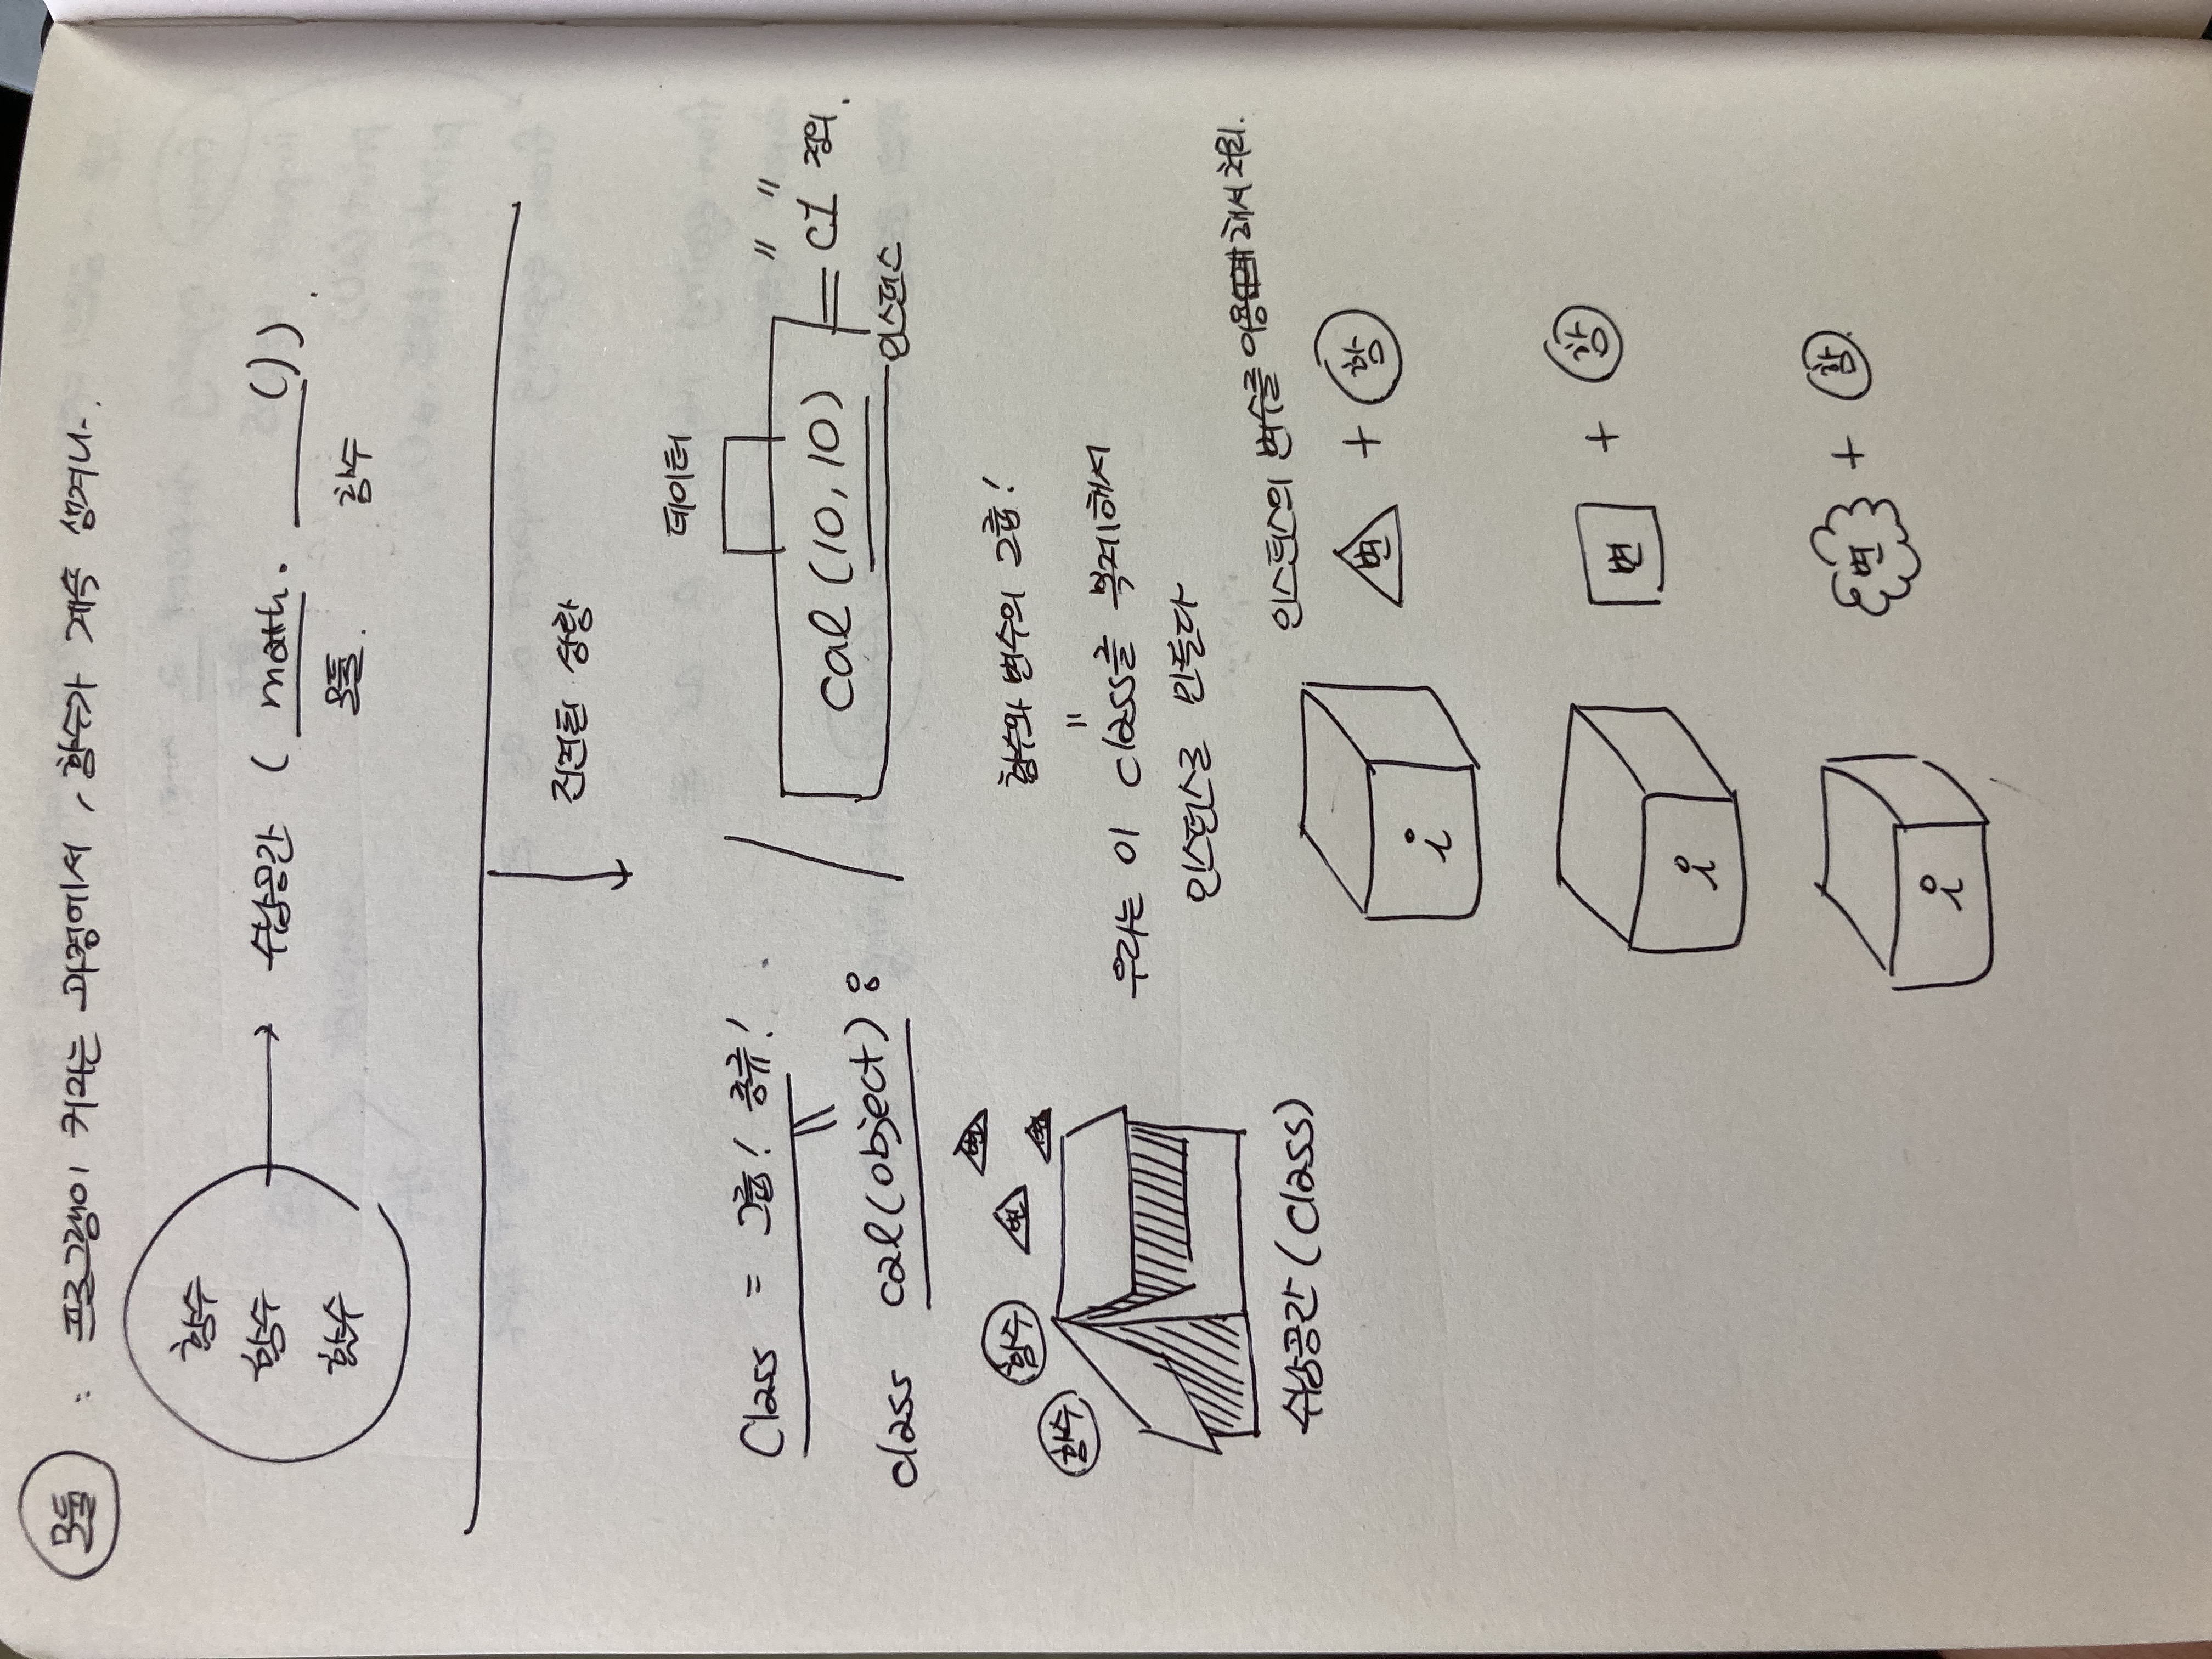 모듈 : 프로그램이 커지는 과정에서, 함수가 계속 생겨나.
함수
함수
함수
수납공간 ( math. ())
모듈. 함수
진전된 상황
Class = 그룹! 종류!
데이터
class cal(object):
cal (10, 10) = C1 정의.
인스턴스
함수 함수 변 변 변
수납공간 (Class)
함수와 변수의 그룹!
우리는 이 class를 복제해서
인스턴스로 만든다
인스턴스의 변수를 이용해서 처리.
i 변 + 함
i 변 + 함
i 변 + 함